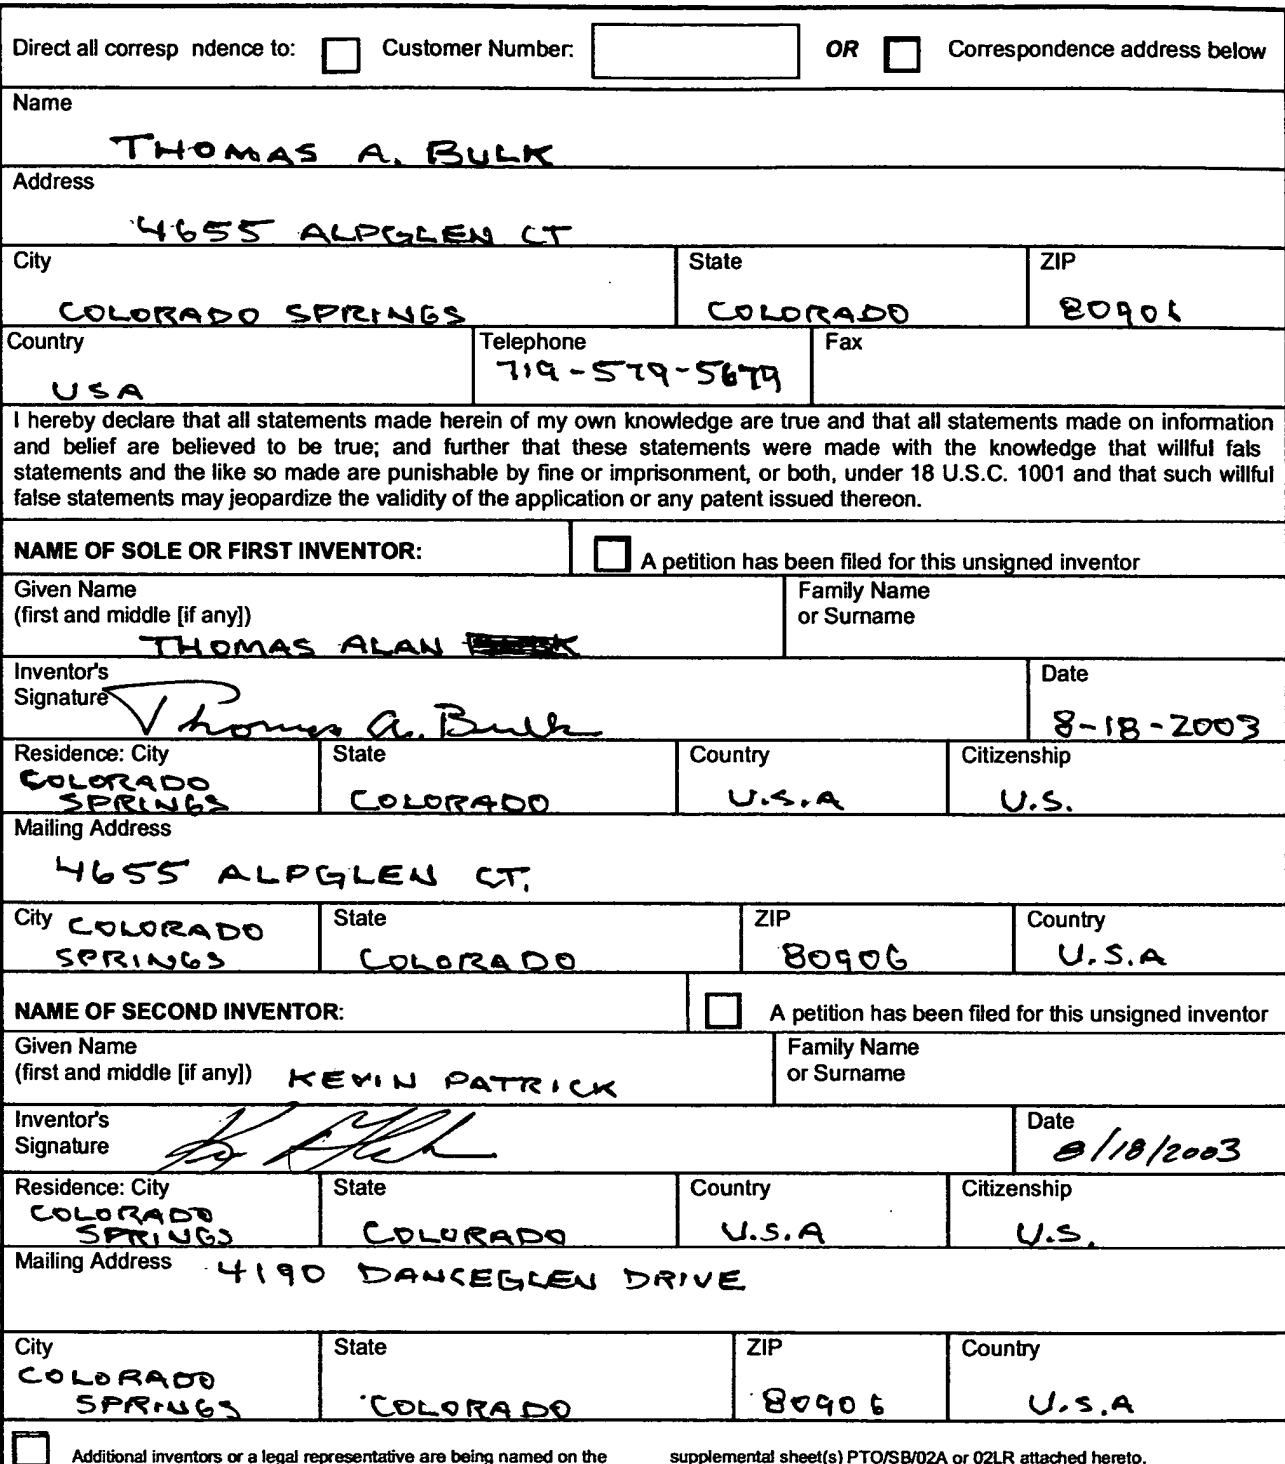 Direct all corresp ndence to: Customer Number: OR Correspondence address below
Name
THOMAS A. BULK
Address
4655 ALPGLEN CT
City State ZIP
COLORADO SPRINGS COLORADO 80906
Country Telephone Fax
USA 719-579-5679
I hereby declare that all statements made herein of my own knowledge are true and that all statements made on information
and belief are believed to be true; and further that these statements were made with the knowledge that willful fals
statements and the like so made are punishable by fine or imprisonment, or both, under 18 U.S.C. 1001 and that such willful
false statements may jeopardize the validity of the application or any patent issued thereon.
NAME OF SOLE OR FIRST INVENTOR: A petition has been filed for this unsigned inventor
Given Name Family Name
(first and middle [if any]) or Surname
THOMAS ALAN
Inventor's Date
Signature Thomas A. Bulk 8-18-2003
Residence: City State Country Citizenship
COLORADO
SPRINGS COLORADO U.S.A U.S.
Mailing Address
4655 ALPGLEN CT.
City COLORADO State ZIP Country
SPRINGS COLORADO 80906 U.S.A
NAME OF SECOND INVENTOR: A petition has been filed for this unsigned inventor
Given Name Family Name
(first and middle [if any]) KEVIN PATRICK or Surname
Inventor's Date
Signature 8/18/2003
Residence: City State Country Citizenship
COLORADO
SPRINGS COLORADO U.S.A U.S.
Mailing Address 4190 DANCEGLEN DRIVE
City State ZIP Country
COLORADO
SPRINGS COLORADO 80906 U.S.A
Additional inventors or a legal representative are being named on the supplemental sheet(s) PTO/SB/02A or 02LR attached hereto.